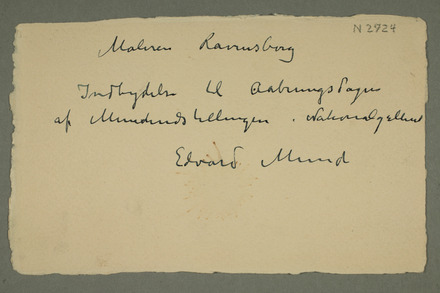 N 2724
Maleren Ravensberg
Indbydelse til Aabningsdagen
af Munchudstillingen i Nationalgalleriet
Edvard Munch